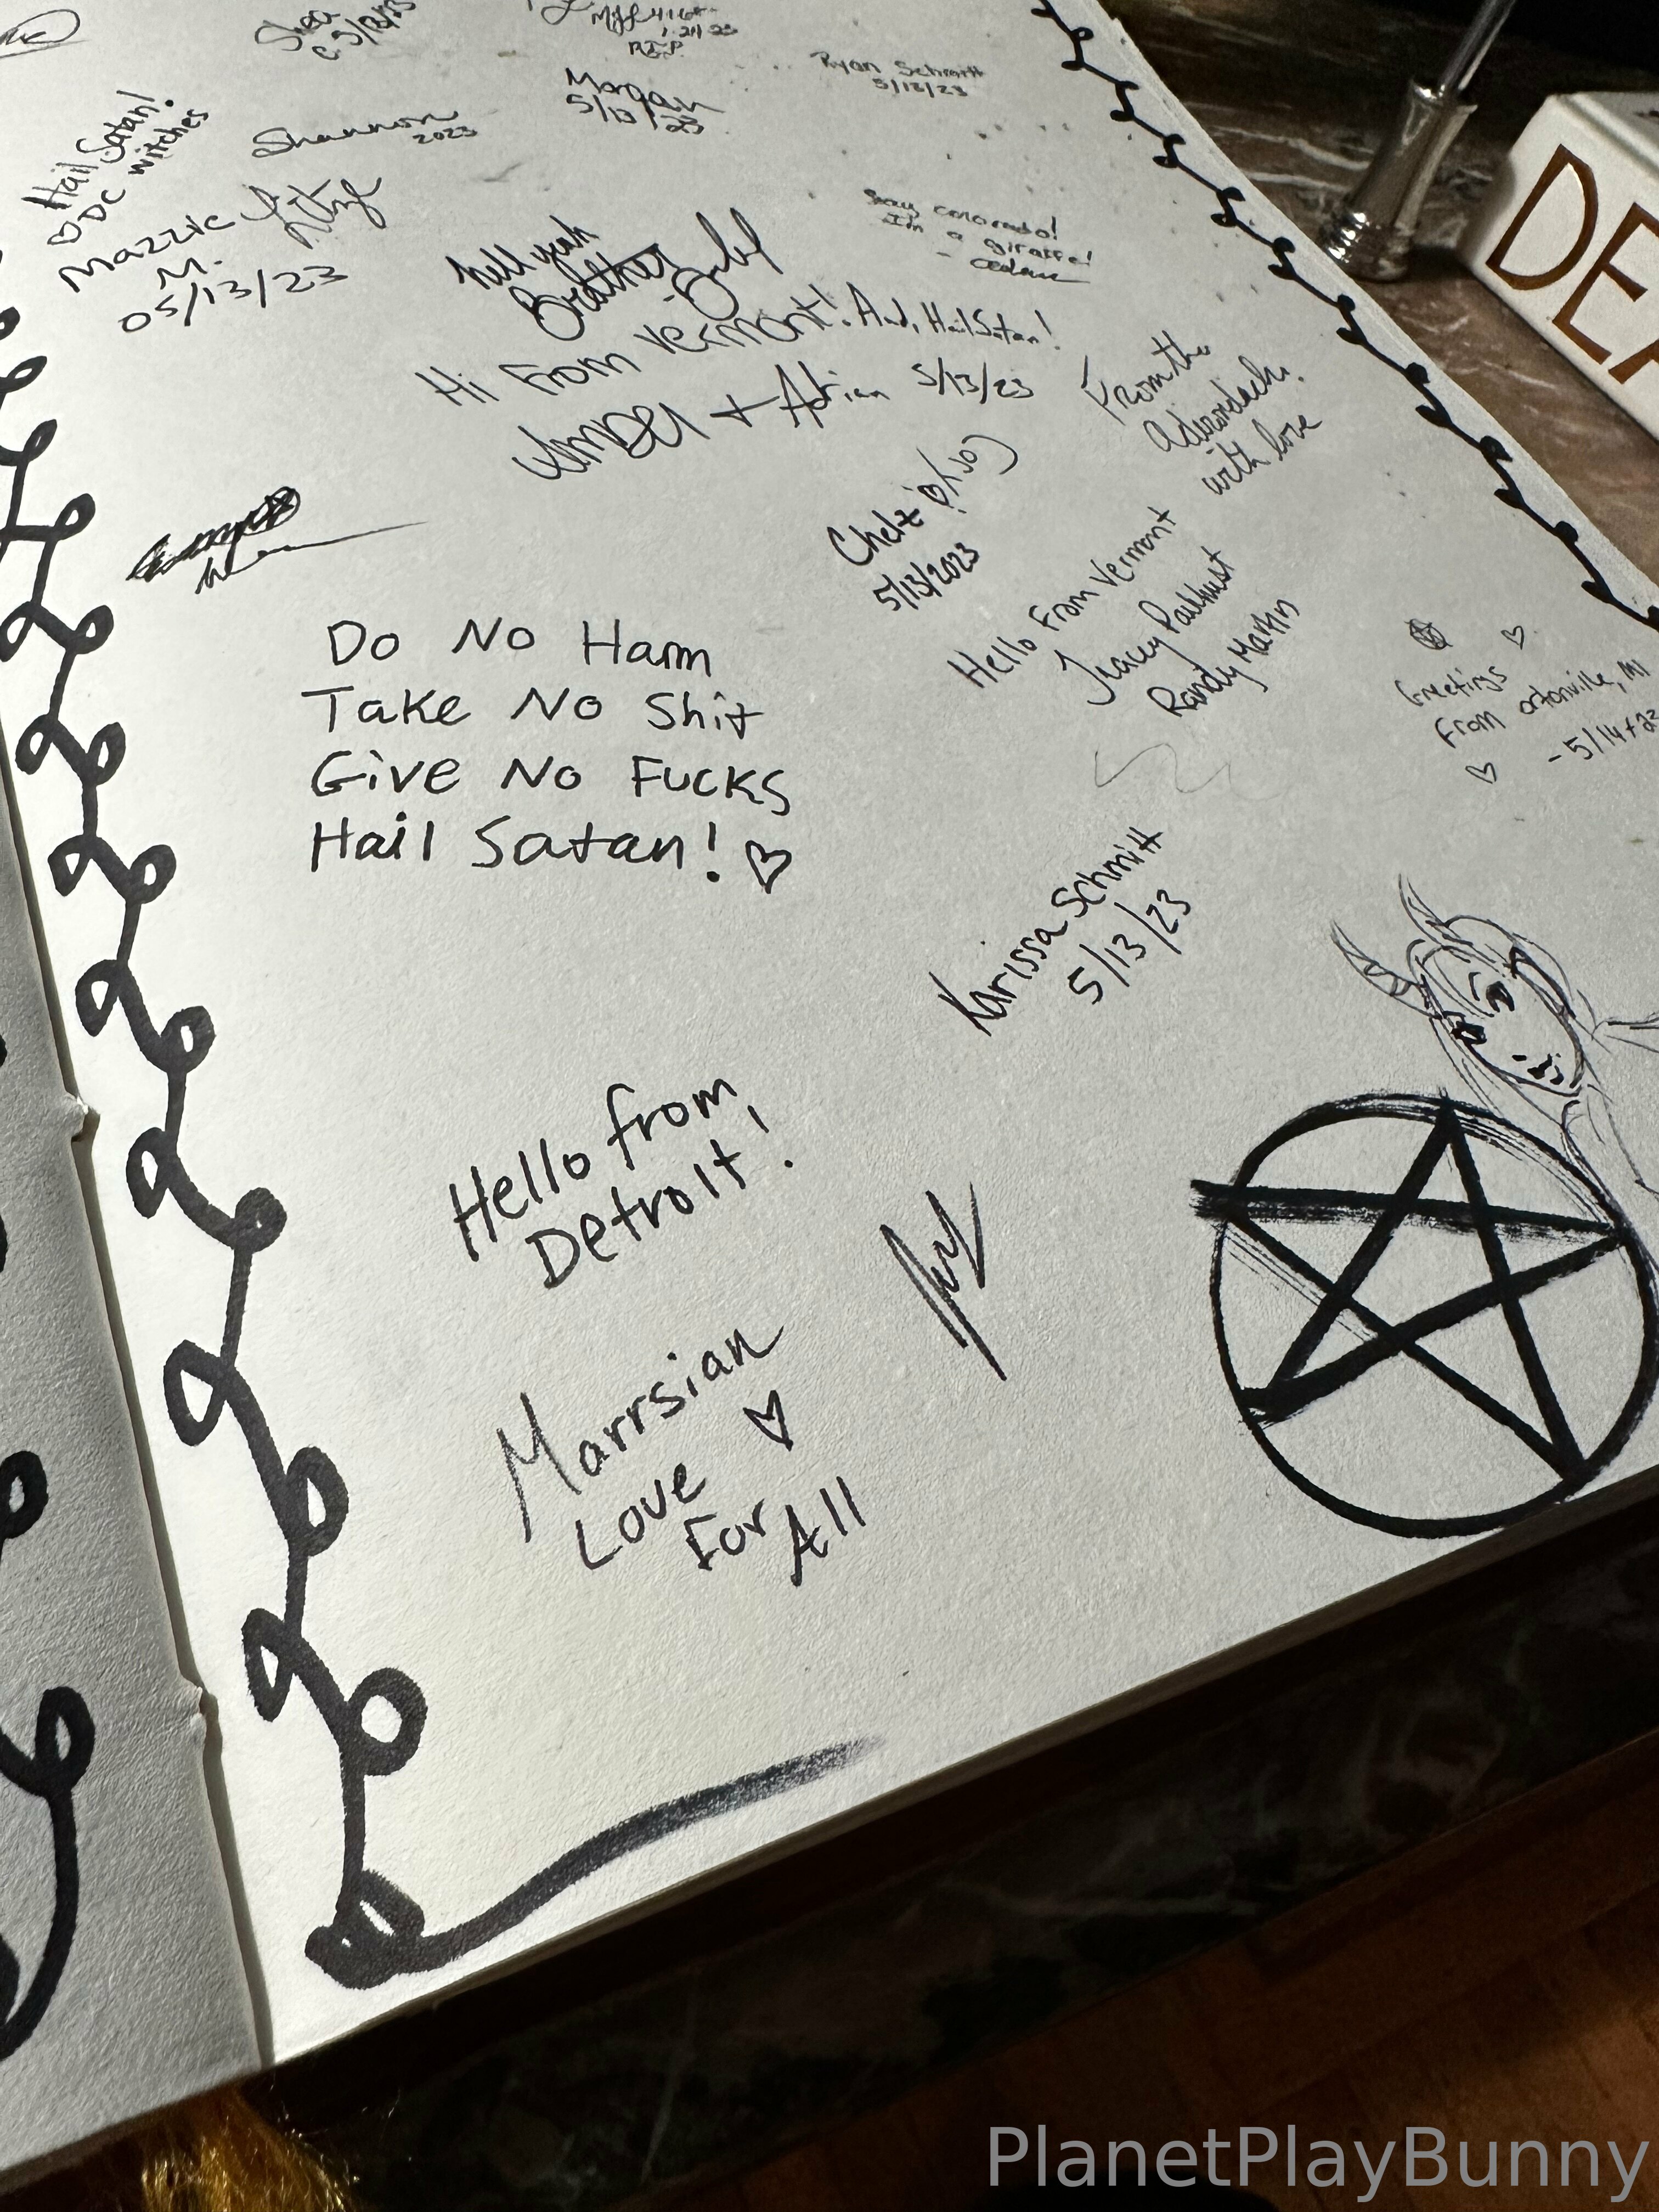 Shea
5/13/23
1·24·23
R.I.P
Morgan
5/13/23
Ryan Schmitt
5/13/23
Hail Satan!
♡ DC witches
Shannon
2023
Mazzie
M.
05/13/23
hell yeah
Brother
I'm a giraffe!
Hi From Vermont! And, Hail Satan!
+ Adrian 5/13/23
From the
Adirondacks.
with love
Chelz
5/13/2023
(or y)
Hello From Vermont
Randy Martin
Do No Harm
Take No Shit
Give No Fucks
Hail Satan! ♡
Greetings
From Ortonville, MI
- 5/14/23
Karissa Schmitt
5/13/23
Hello from
Detroit!
Marrsian
Love ♡
For All
DEA
PlanetPlayBunny